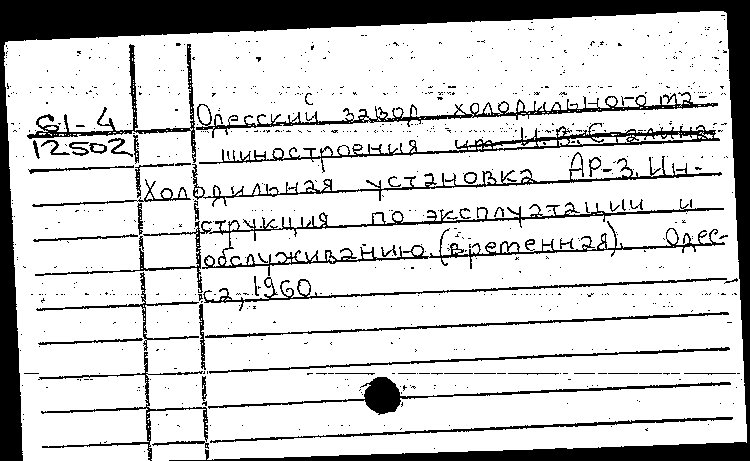 61-4
12502
Одесский завод холодильного ма-
шиностроения им. И. В. Сталина.
Холодильная установка АР-3. Ин-
струкция по эксплуатации и
обслуживанию. (временная). Одес-
са, 1960.